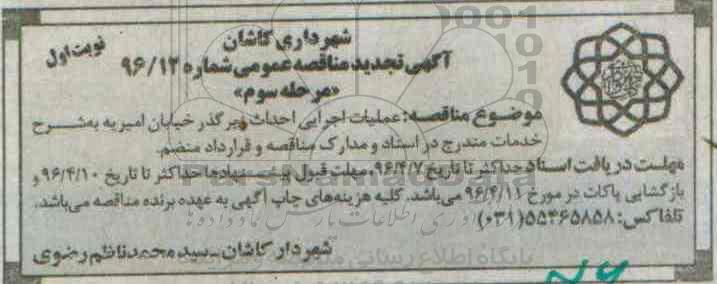 شهرداری کاشان
نوبت اول
آگهی تجدید مناقصه عمومی شماره ۹۶/۱۲
«مرحله سوم»
موضوع مناقصه: عملیات اجرایی احداث زیرگذر خیابان امیریه به شرح
خدمات مندرج در اسناد و مدارک مناقصه و قرارداد منضم.
مهلت دریافت اسناد حداکثر تا تاریخ ۹۶/۴/۷، مهلت قبول پیشنهادها حداکثر تا تاریخ ۹۶/۴/۱۰ و
بازگشایی پاکات در مورخ ۹۶/۴/۱۱ می‌باشد. کلیه هزینه‌های چاپ آگهی به عهده برنده مناقصه می‌باشد.
تلفاکس: ۵۵۴۶۵۸۵۸ (۰۳۱)
شهردار کاشان ـ سید محمدناظم رضوی